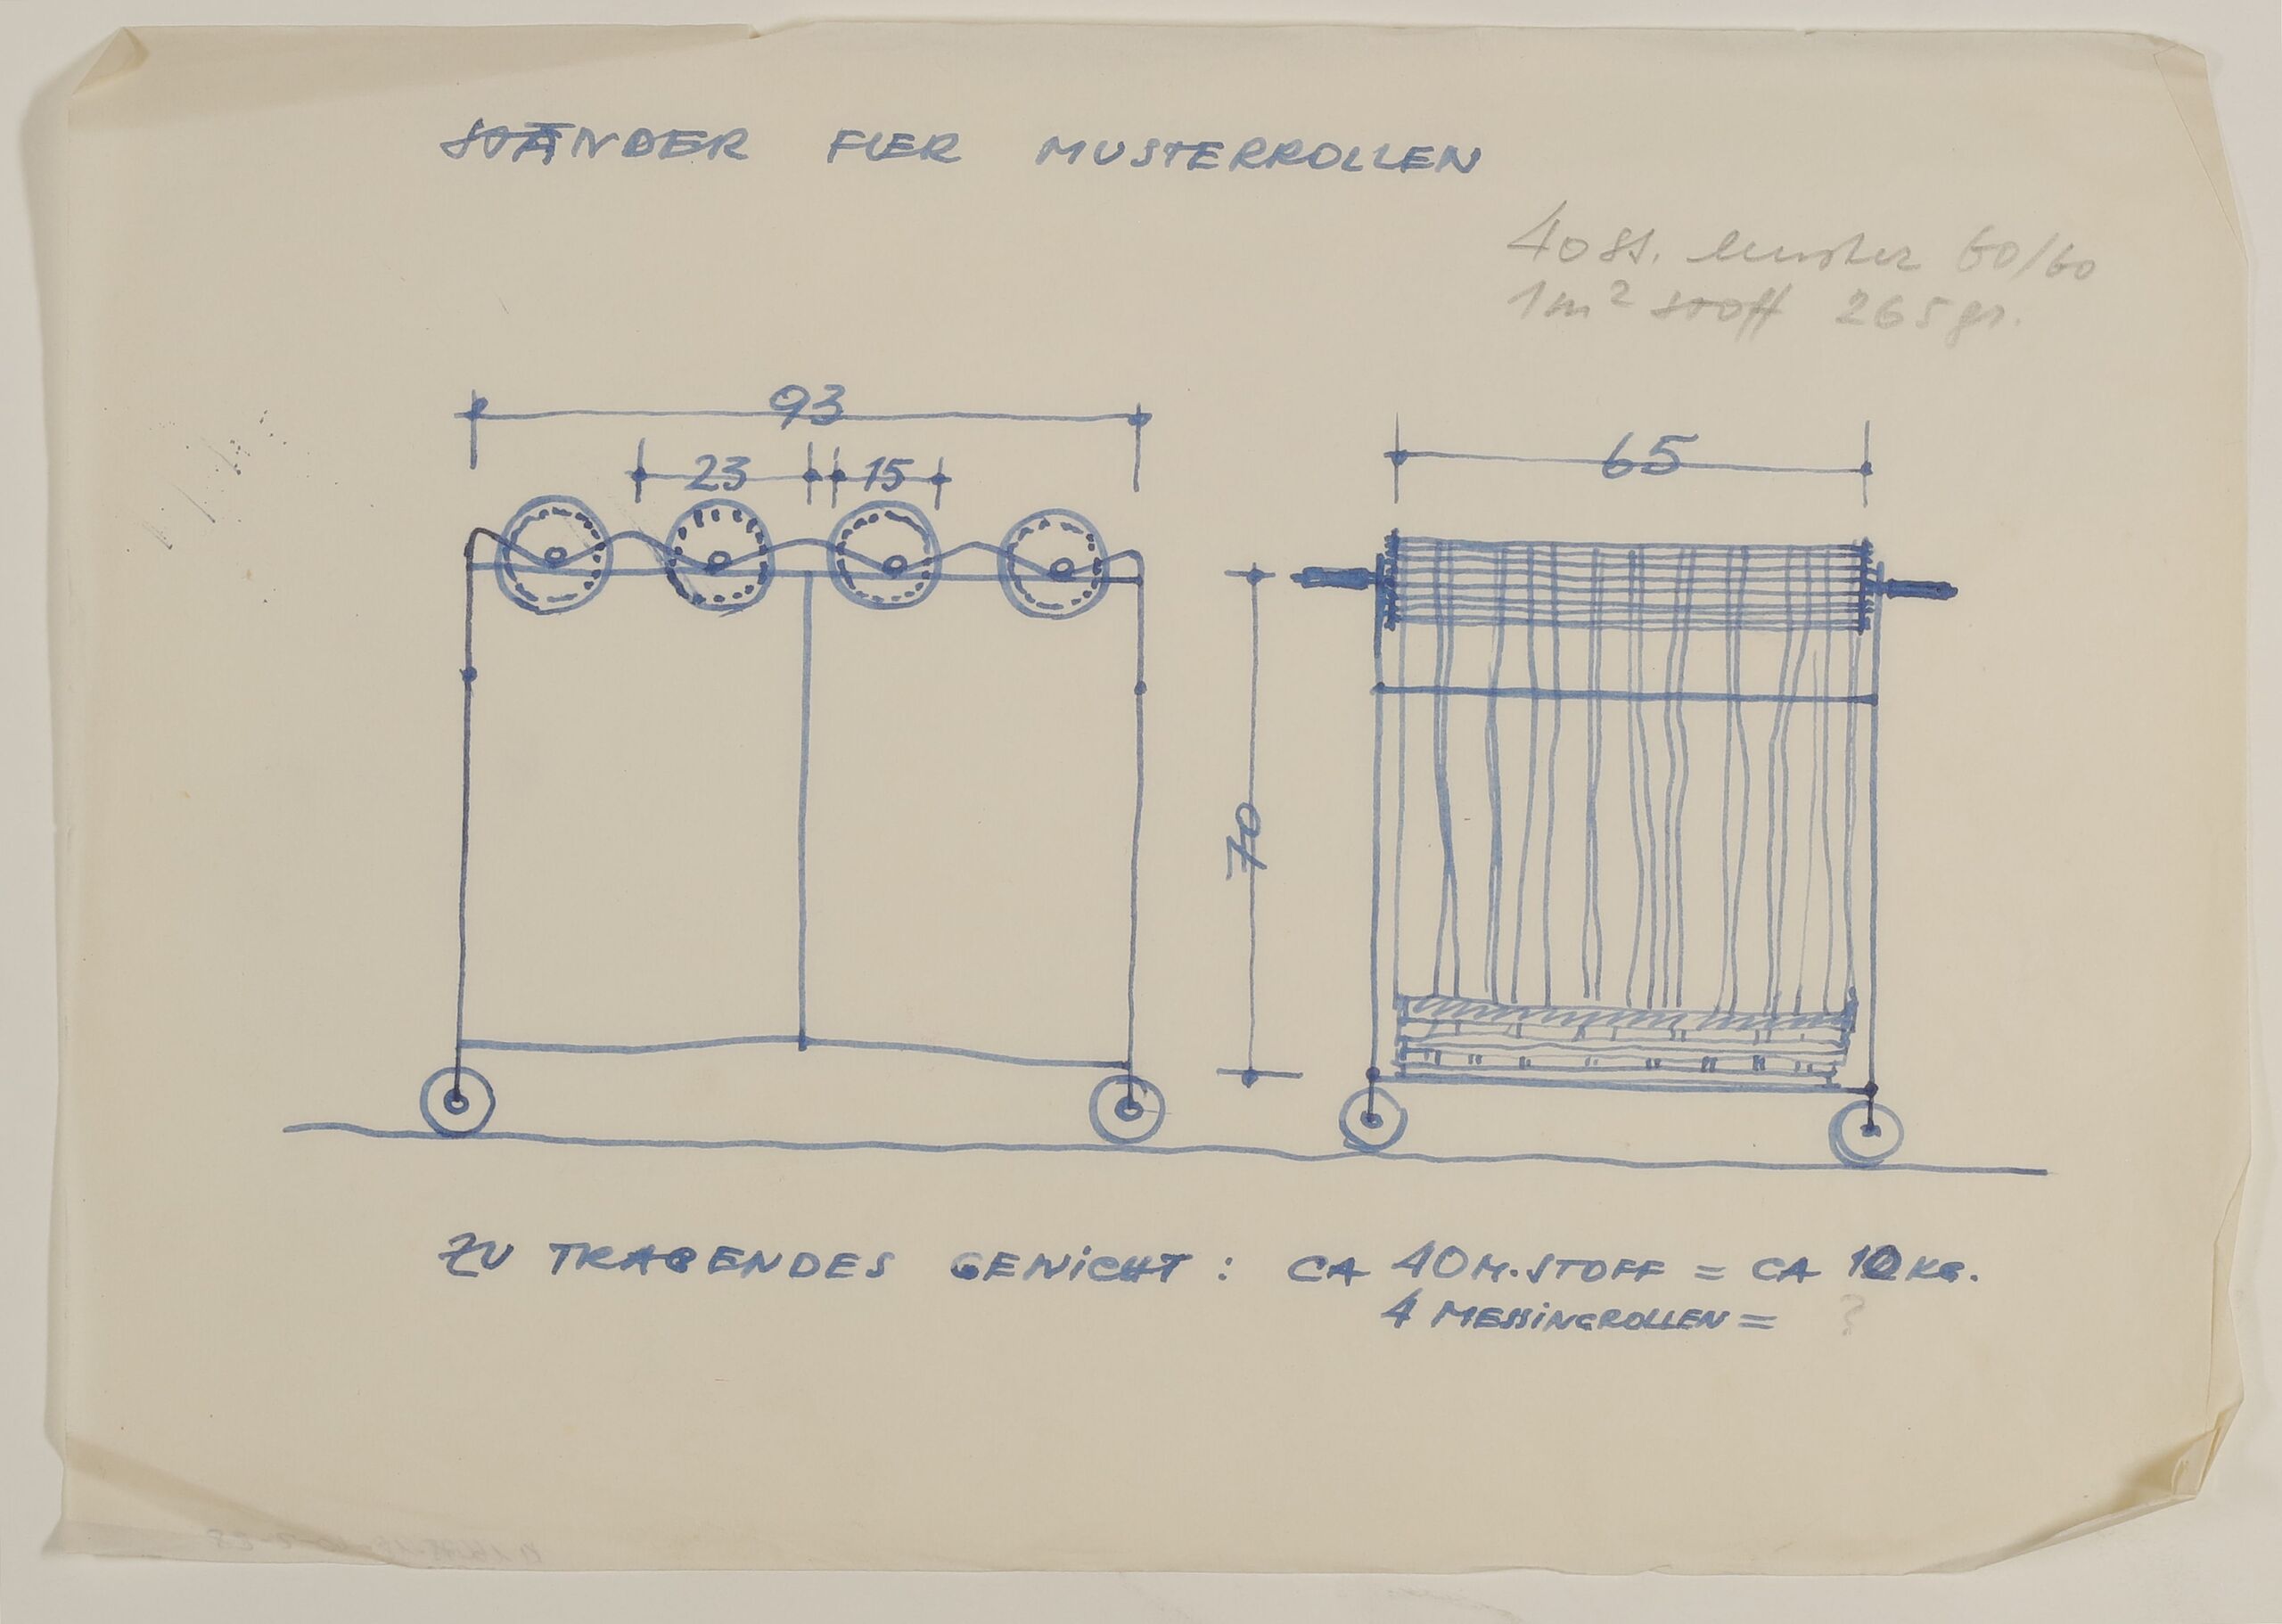 STÄNDER FUER MUSTERROLLEN
40 St. Muster 60/60
1m² Stoff 265 gr.
93
23 15
65
70
ZU TRAGENDES GEWICHT : CA 40 M. STOFF = CA 10 KG.
4 MESSINGROLLEN = ?